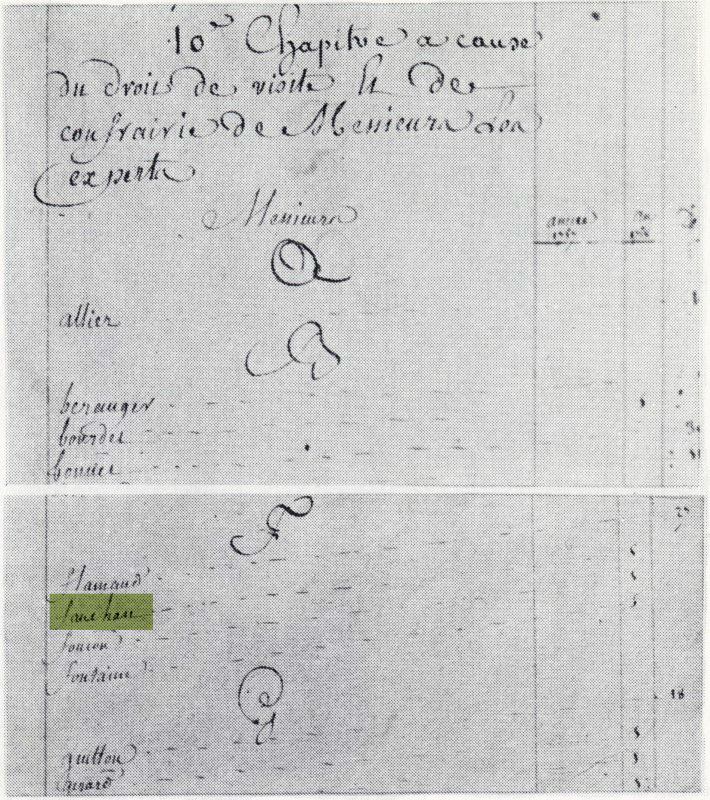 10e Chapitre a cause
du droit de visite Et de
confrairie de Messieurs Les
experts
Messieurs
année
A
allier
B
beranger
bourdet
bonnet
F
flamand
fauchau
foucou
fontaine
18
G
guitton
girard